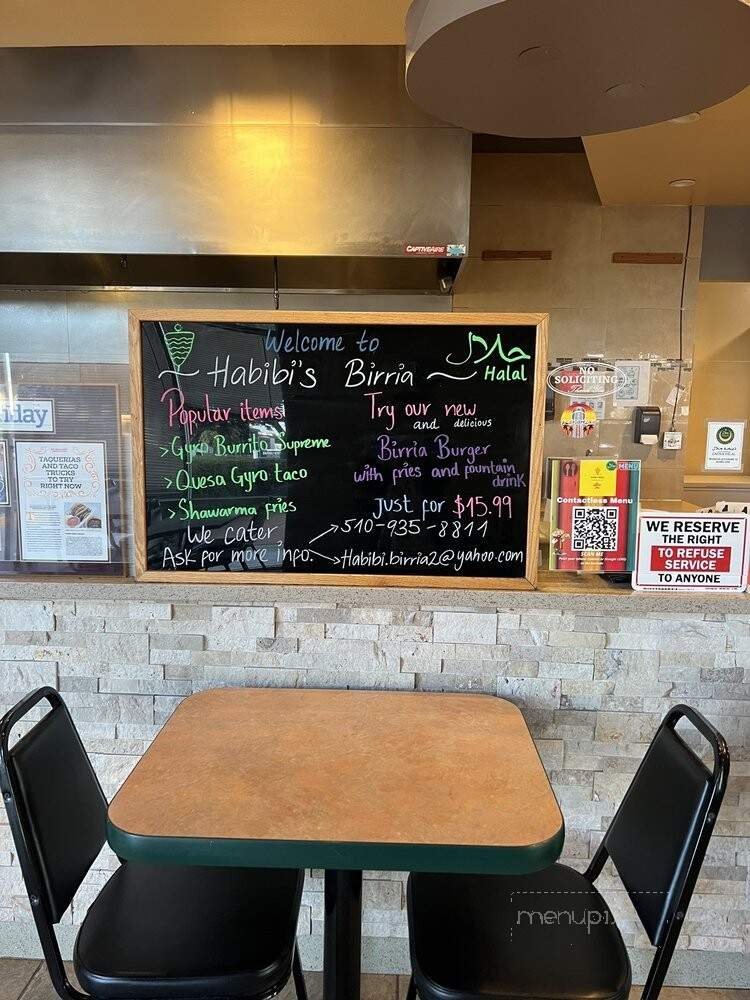 CAPTIVEAIRE
Welcome to
Habibi's Birria
حلال
Halal
Popular items
>Gyro Burrito Supreme
>Quesa Gyro taco
>Shawarma fries
We cater
Ask for more info
Try our new
and delicious
Birria Burger
with fries and fountain
drink
Just for $15.99
510-935-8811
Habibi.birria2@yahoo.com
day
TAQUERIAS
AND TACO
TRUCKS
TO TRY
RIGHT NOW
NO
SOLICITING
MENU
Contactless Menu
SCAN ME
WE RESERVE
THE RIGHT
TO REFUSE
SERVICE
TO ANYONE
menupix